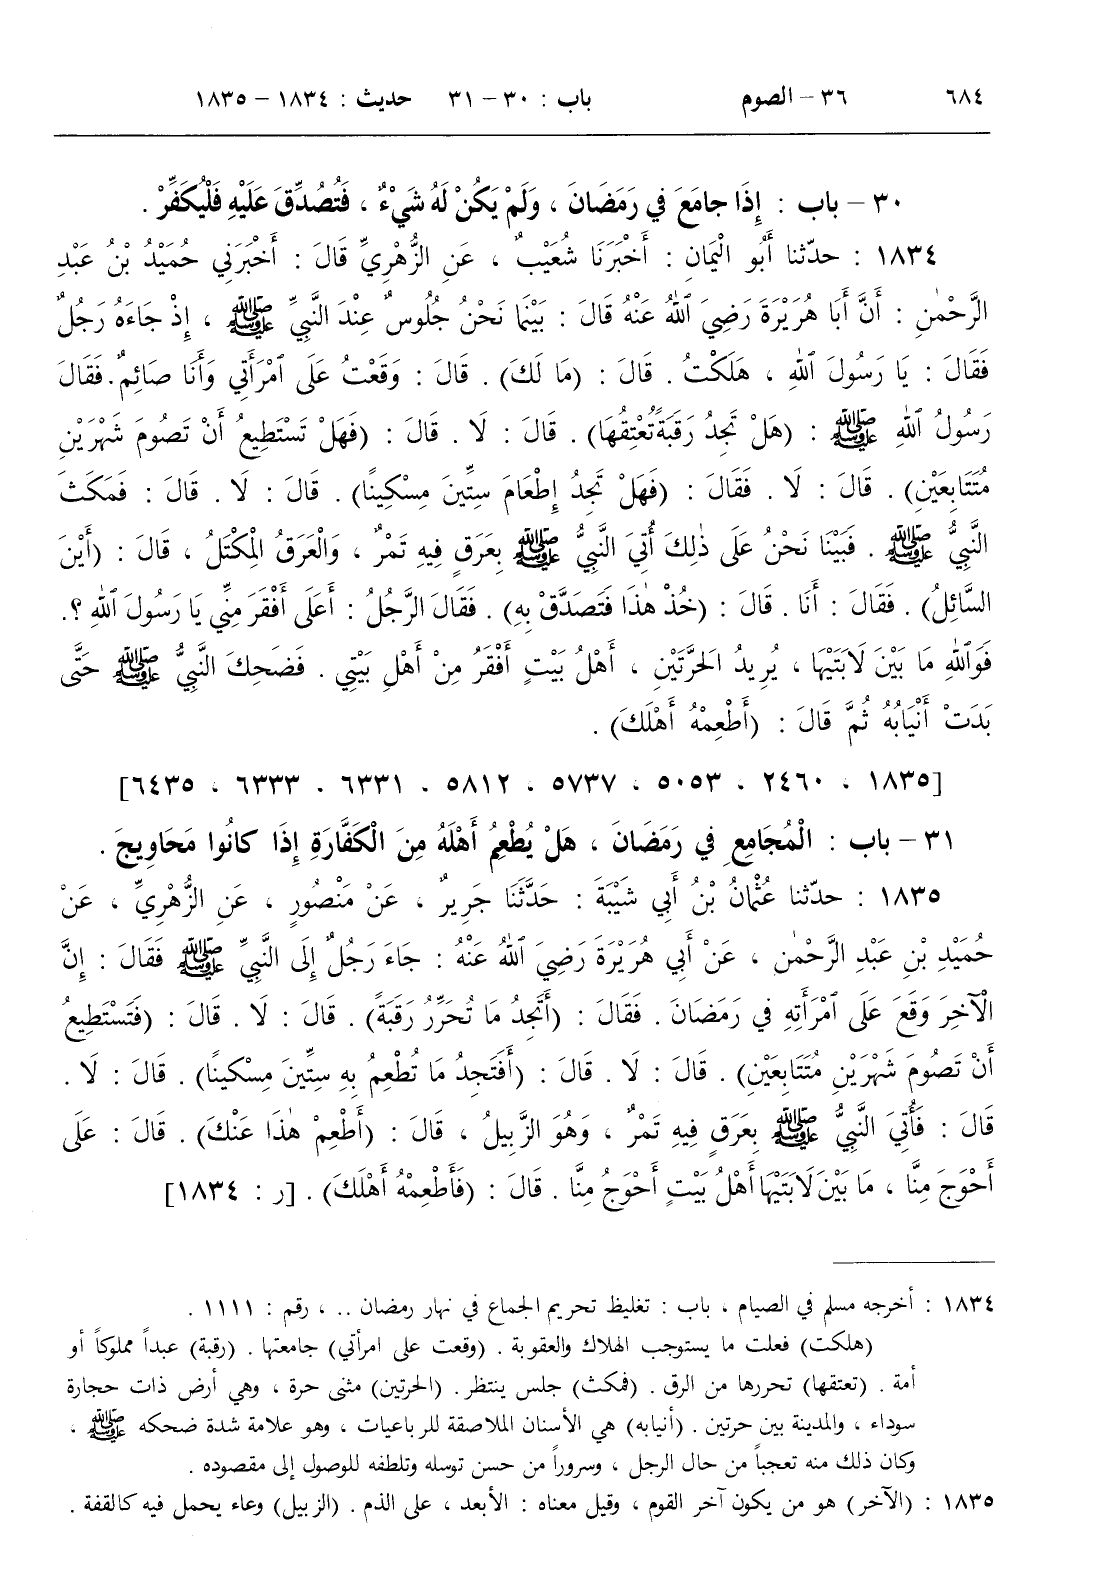 ٦٨٤ ٣٦ – الصوم باب : ٣٠ – ٣١ حديث : ١٨٣٤ – ١٨٣٥
٣٠ – باب : إِذَا جامَعَ فِي رَمَضَانَ ، وَلَمْ يَكُنْ لَهُ شَيْءٌ ، فَتُصُدِّقَ عَلَيْهِ فَلْيُكَفِّرْ .
١٨٣٤ : حدّثنا أَبُو الْيَمَانِ : أَخْبَرَنَا شُعَيْبٌ ، عَنِ الزُّهْرِيِّ قَالَ : أَخْبَرَنِي حُمَيْدُ بْنُ عَبْدِ
الرَّحْمٰنِ : أَنَّ أَبَا هُرَيْرَةَ رَضِيَ ٱللهُ عَنْهُ قَالَ : بَيْنَمَا نَحْنُ جُلُوسٌ عِنْدَ النَّبِيِّ ﷺ ، إِذْ جَاءَهُ رَجُلٌ
فَقَالَ : يَا رَسُولَ ٱللهِ ، هَلَكْتُ . قَالَ : (مَا لَكَ) . قَالَ : وَقَعْتُ عَلَى ٱمْرَأَتِي وَأَنَا صَائِمٌ . فَقَالَ
رَسُولُ ٱللهِ ﷺ : (هَلْ تَجِدُ رَقَبَةً تُعْتِقُهَا) . قَالَ : لَا . قَالَ : (فَهَلْ تَسْتَطِيعُ أَنْ تَصُومَ شَهْرَيْنِ
مُتَتَابِعَيْنِ) . قَالَ : لَا . فَقَالَ : (فَهَلْ تَجِدُ إِطْعَامَ سِتِّينَ مِسْكِينًا) . قَالَ : لَا . قَالَ : فَمَكَثَ
النَّبِيُّ ﷺ . فَبَيْنَا نَحْنُ عَلَى ذٰلِكَ أُتِيَ النَّبِيُّ ﷺ بِعَرَقٍ فِيهِ تَمْرٌ ، وَالْعَرَقُ الْمِكْتَلُ ، قَالَ : (أَيْنَ
السَّائِلُ) . فَقَالَ : أَنَا . قَالَ : (خُذْ هٰذَا فَتَصَدَّقْ بِهِ) . فَقَالَ الرَّجُلُ : أَعَلَى أَفْقَرَ مِنِّي يَا رَسُولَ ٱللهِ ؟.
فَوَٱللهِ مَا بَيْنَ لَابَتَيْهَا ، يُرِيدُ الحَرَّتَيْنِ ، أَهْلُ بَيْتٍ أَفْقَرُ مِنْ أَهْلِ بَيْتِي . فَضَحِكَ النَّبِيُّ ﷺ حَتَّى
بَدَتْ أَنْيَابُهُ ثُمَّ قَالَ : (أَطْعِمْهُ أَهْلَكَ) .
[١٨٣٥ ، ٢٤٦٠ ، ٥٠٥٣ ، ٥٧٣٧ ، ٥٨١٢ ، ٦٣٣١ ، ٦٣٣٣ ، ٦٤٣٥]
٣١ – باب : الْمُجَامِعِ فِي رَمَضَانَ ، هَلْ يُطْعِمُ أَهْلَهُ مِنَ الْكَفَّارَةِ إِذَا كانُوا مَحَاوِيجَ .
١٨٣٥ : حدّثنا عُثْمانُ بْنُ أَبِي شَيْبَةَ : حَدَّثَنَا جَرِيرٌ ، عَنْ مَنْصُورٍ ، عَنِ الزُّهْرِيِّ ، عَنْ
حُمَيْدِ بْنِ عَبْدِ الرَّحْمٰنِ ، عَنْ أَبِي هُرَيْرَةَ رَضِيَ ٱللهُ عَنْهُ : جَاءَ رَجُلٌ إِلَى النَّبِيِّ ﷺ فَقَالَ : إِنَّ
الْآخِرَ وَقَعَ عَلَى ٱمْرَأَتِهِ فِي رَمَضَانَ . فَقَالَ : (أَتَجِدُ مَا تُحَرِّرُ رَقَبَةً) . قَالَ : لَا . قَالَ : (فَتَسْتَطِيعُ
أَنْ تَصُومَ شَهْرَيْنِ مُتَتَابِعَيْنِ) . قَالَ : لَا . قَالَ : (أَفَتَجِدُ مَا تُطْعِمُ بِهِ سِتِّينَ مِسْكِينًا) . قَالَ : لَا .
قَالَ : فَأُتِيَ النَّبِيُّ ﷺ بِعَرَقٍ فِيهِ تَمْرٌ ، وَهُوَ الزَّبِيلُ ، قَالَ : (أَطْعِمْ هٰذَا عَنْكَ) . قَالَ : عَلَى
أَحْوَجَ مِنَّا ، مَا بَيْنَ لَابَتَيْهَا أَهْلُ بَيْتٍ أَحْوَجُ مِنَّا . قَالَ : (فَأَطْعِمْهُ أَهْلَكَ) . [ر : ١٨٣٤]
١٨٣٤ : أخرجه مسلم في الصيام ، باب : تغليظ تحريم الجماع في نهار رمضان .. ، رقم : ١١١١ .
(هلكت) فعلت ما يستوجب الهلاك والعقوبة . (وقعت على امرأتي) جامعتها . (رقبة) عبداً مملوكاً أو
أمة . (تعتقها) تحررها من الرق . (فمكث) جلس ينتظر . (الحرتين) مثنى حرة ، وهي أرض ذات حجارة
سوداء ، والمدينة بين حرتين . (أنيابه) هي الأسنان الملاصقة للرباعيات ، وهو علامة شدة ضحكه ﷺ ،
وكان ذلك منه تعجباً من حال الرجل ، وسروراً من حسن توسله وتلطفه للوصول إلى مقصوده .
١٨٣٥ : (الآخر) هو من يكون آخر القوم ، وقيل معناه : الأبعد ، على الذم . (الزبيل) وعاء يحمل فيه كالقفة .